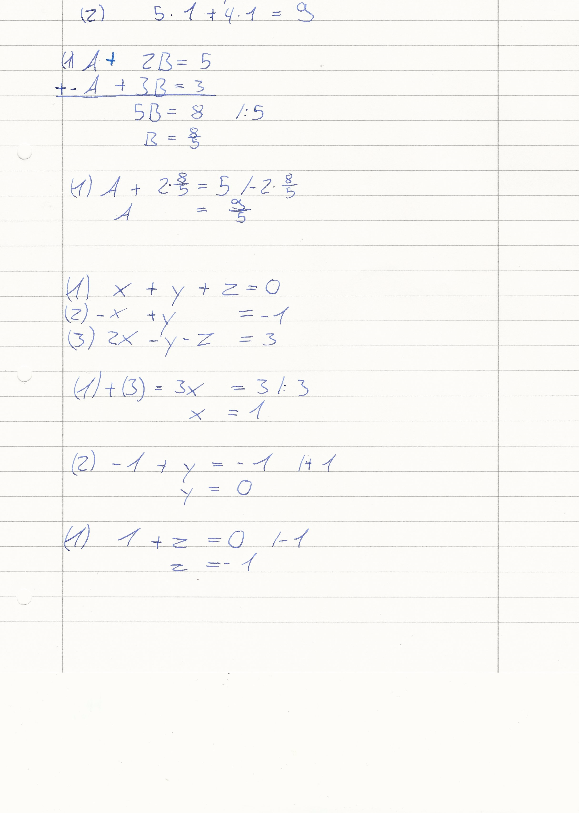 (2) 5 · 1 + 4 · 1 = 9
(1) A + 2B = 5
+ - A + 3B = 3
5B = 8 /:5
B = 8/5
(1) A + 2·8/5 = 5 /-2·8/5
A = 9/5
(1) x + y + z = 0
(2) -x + y = -1
(3) 2x - y - z = 3
(1) + (3) = 3x = 3 /:3
x = 1
(2) -1 + y = -1 /+1
y = 0
(1) 1 + z = 0 /-1
z = -1